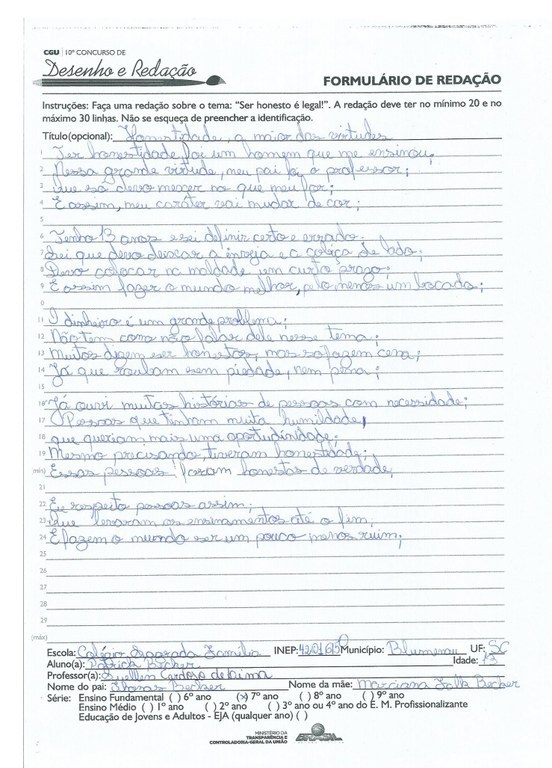 CGU | 10º CONCURSO DE
Desenho e Redação
FORMULÁRIO DE REDAÇÃO
Instruções: Faça uma redação sobre o tema: "Ser honesto é legal!". A redação deve ter no mínimo 20 e no
máximo 30 linhas. Não se esqueça de preencher a identificação.
Título(opcional): Honestidade, a maior das virtudes
1 Ter honestidade foi um homem que me ensinou,
2 Nessa grande virtude, meu pai foi o professor;
3 Que só devo mexer no que meu for;
4 E assim, meu caráter vai mudar de cor;
5
6 Tenho 13 anos e sei definir certo e errado.
7 Sei que devo deixar a inveja e a cobiça de lado;
8 Devo colocar na maldade um curto prazo;
9 E assim fazer o mundo melhor, pelo menos um bocado;
0
11 O dinheiro é um grande problema;
12 Não tem como não falar dele nesse tema;
13 Muitos dizem ser honestos, mas só fazem cena;
14 Já que roubam sem piedade, nem pena;
15
16 Já ouvi muitas histórias de pessoas com necessidade;
17 Pessoas que tinham muita humildade,
18 que queriam mais uma oportudinidade;
19 Mesmo precisando, tiveram honestidade;
(mín) Essas pessoas foram honestas de verdade,
21
22 Eu respeito pessoas assim;
23 Que levaram os ensinamentos até o fim,
24 E fazem o mundo ser um pouco menos ruim;
25
26
27
28
29
(máx)
Escola: Colégio Sagrada Família INEP: Município: Blumenau UF: SC
Aluno(a): Patrick Becker Idade: 13
Professor(a): Suellen Cardoso de Lima
Nome do pai: Becker Nome da mãe: Marciana Becker
Série: Ensino Fundamental ( ) 6º ano (x) 7º ano ( ) 8º ano ( ) 9º ano
Ensino Médio ( ) 1º ano ( ) 2º ano ( ) 3º ano ou 4º ano do E. M. Profissionalizante
Educação de Jovens e Adultos - EJA (qualquer ano) ( )
MINISTÉRIO DA
TRANSPARÊNCIA E
CONTROLADORIA-GERAL DA UNIÃO
BRASIL